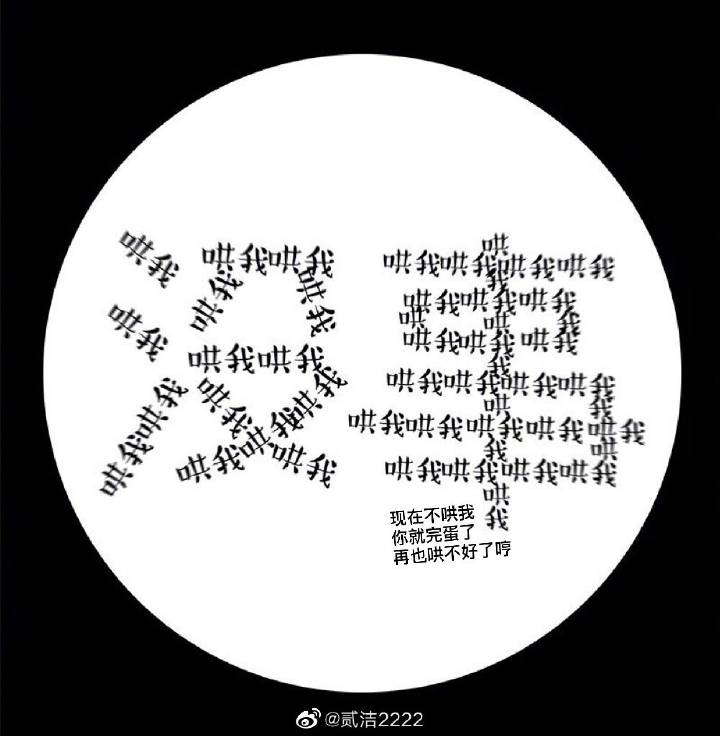 没事
哄我
哄我
哄我哄我
哄我哄我
哄我
哄我
哄我哄我
哄我哄我哄我
哄我
哄我
哄我哄我哄我哄我
哄我哄我哄我
哄
我
哄我哄我哄我
哄我哄我哄我哄我
我哄
哄我哄我哄我哄我哄我
哄我哄我哄我哄我
哄我哄我哄我哄我
现在不哄我
你就完蛋了
再也哄不好了哼
@贰洁2222